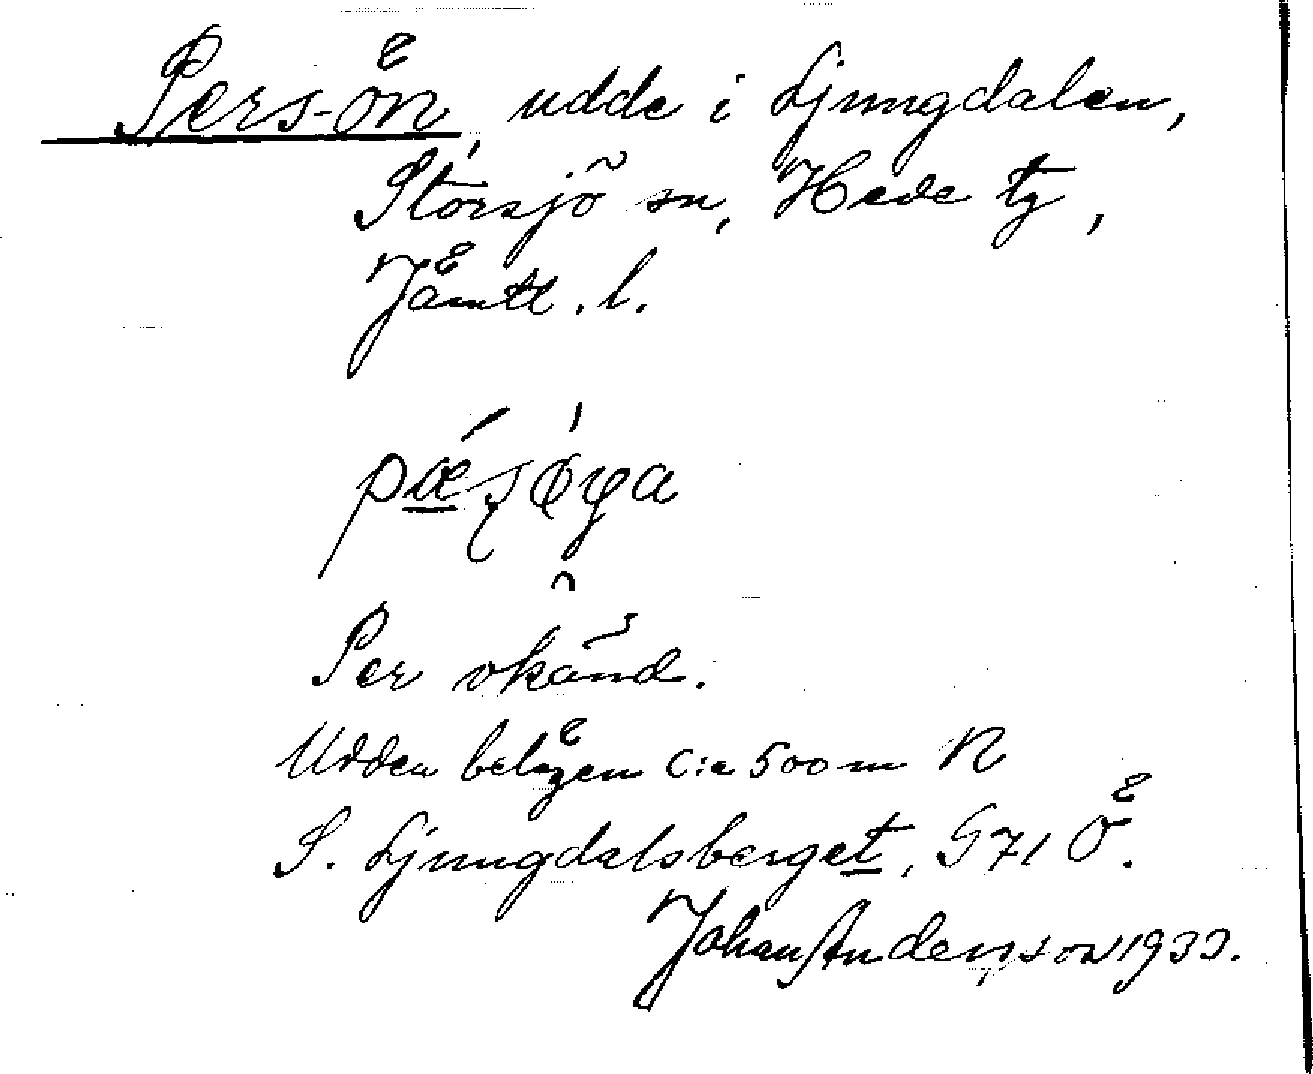 Pers-ön, udde i Ljungdalen,
Storsjö sn, Hede tg,
Jämtl. l.
Per okänd.
Udden belägen c:a 500 m N
S. Ljungdalsberget, G71 Ö.
Johan Andersson 1933.